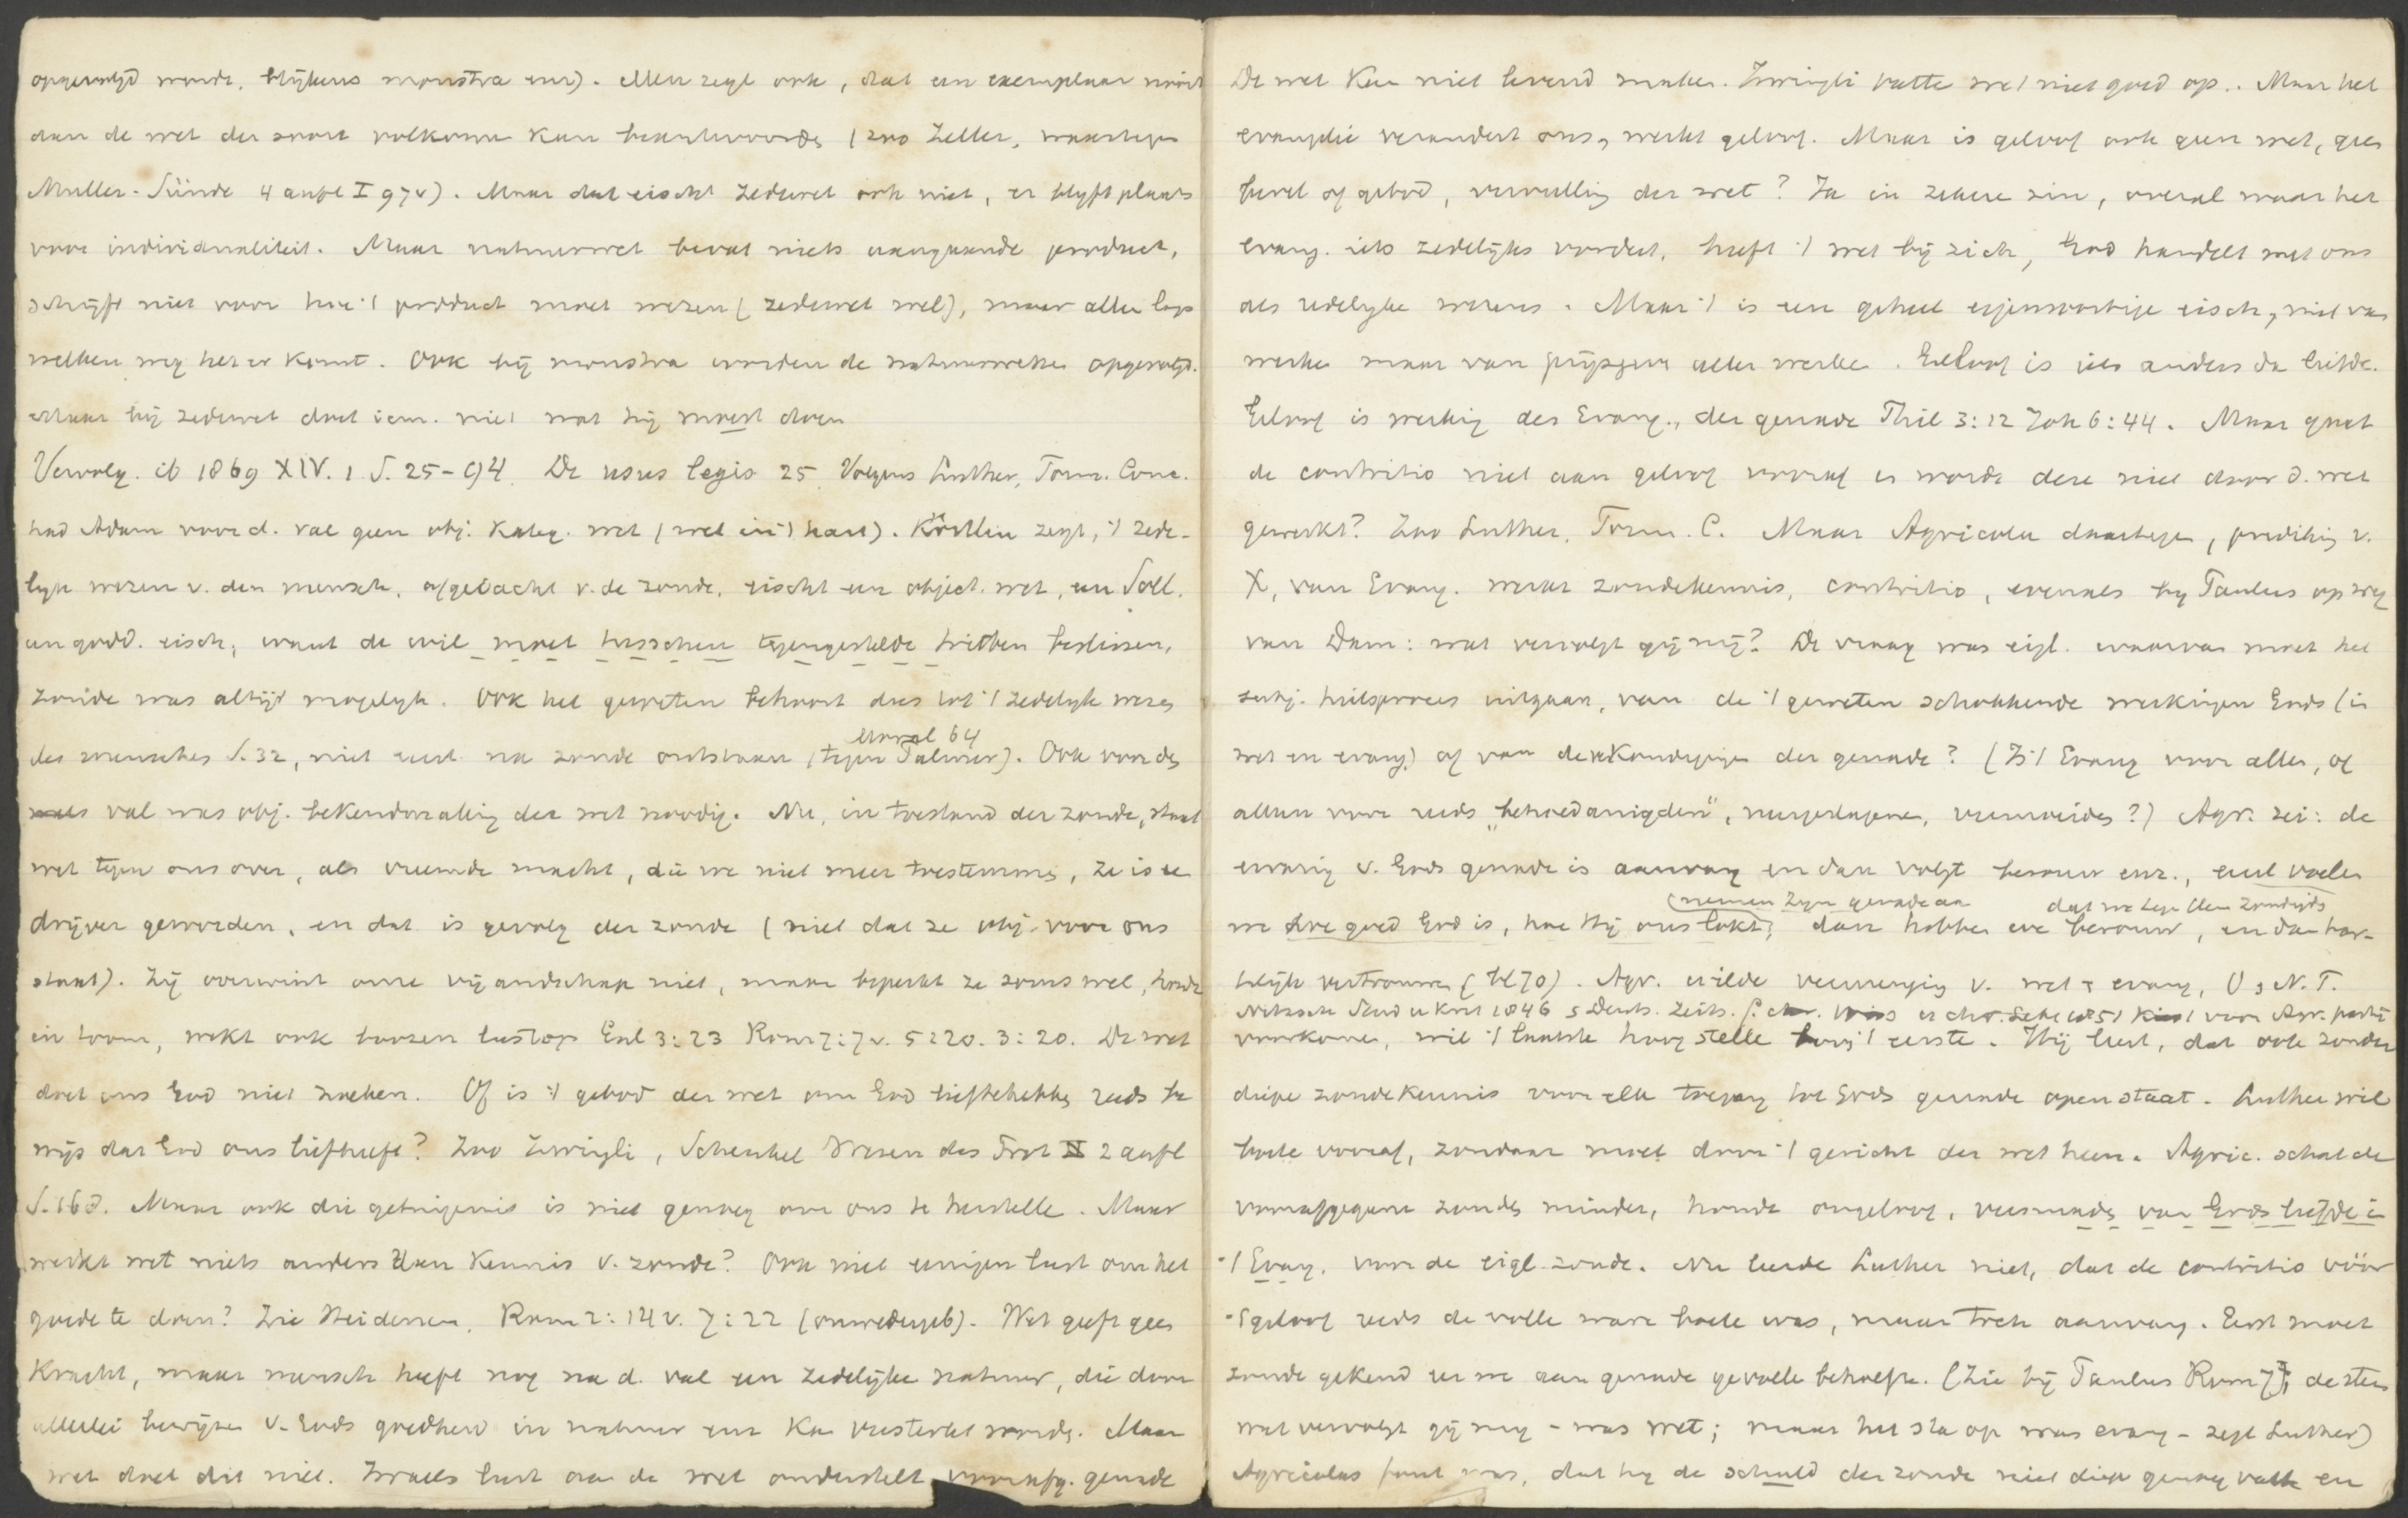 opgevolgd wordt, blijkens monstra enz). Men zegt ook, dat een exemplaar nooit
aan de wet der soort volkomen kan beantwoorden (zoo Zeller, waartegen
Muller-Sünde 4 aufl I 97v). Maar dat eischt zedewet ook niet, er blijft plaats
voor individualiteit. Maar natuurwet bevat niets aangaande product,
schrijft niet voor hoe 't product moet wezen (zedewet wel), maar alleen langs
welken weg het er komt. Ook bij monstra worden de natuurwetten opgevolgd.
Maar bij zedewet doet iem. niet wat hij moest doen
Vervolg. ib 1869 XIV. 1 S. 25-94. De usus legis 25 Volgens Luther, Form. Conc.
had Adam voor d. val geen obj. kateg. wet (wel in 't hart). Köstlin zegt, 't zede-
lijk wezen v. den mensch, afgedacht v. de zonde, eischt een object. wet, een Soll,
een godd. eisch, want de wil moet tusschen tegengestelde driften beslissen,
zonde was altijd mogelijk. Ook het geweten behoort dus tot 't zedelijk wezen
des menschen S. 32, niet eerst na zonde ontstaan (tegen Palmer). Ook voor den
Moral 64
val was obj. bekendmaking der wet noodig. Nu, in toestand der zonde, staat
wet tegen ons over, als vreemde macht, die we niet meer toestemmen, ze is een
drijver geworden, en dat is gevolg der zonde (niet dat ze obj. voor ons
staat). Zij overwint onze vijandschap niet, maar beperkt ze soms wel, houdt
in toom, wekt ook boozen lust op Gal 3:23 Rom 7:7v. 5:20. 3:20. De wet
doet ons God niet zoeken. Of is 't gebod der wet om God lief te hebben reeds be
wijs dat God ons liefheeft? Zoo Zwingli, Schenkel Wesen des Prot II 2 aufl
S. 168. Maar ook die getuigenis is niet genoeg om ons te herstellen. Maar
werkt wet niets anders dan kennis v. zonde? Ook niet eenigen lust om het
goede te doen? Zie Heidenen, Rom 2:14v. 7:22 (onwedergeb). Wet geeft geen
kracht, maar mensch heeft nog na d. val een zedelijke natuur, die door
allerlei bewijzen v. Gods goedheid in natuur enz kan versterkt worden. Maar
wet doet dit niet. Israels lust aan de wet onderstelt voorafg. genade
De wet kan niet levend maken. Zwingli vatte wet niet goed op.. Maar het
evangelie verandert ons, werkt geloof. Maar is geloof ook geen wet, geen
bevel of gebod, vervulling der wet? Ja in zekere zin, overal waar het
evang. iets zedelijks vordert, heeft 't wet bij zich, God handelt met ons
als redelijke wezens. Maar 't is een geheel eigensoortige eisch, niet van
werken maar van prijsgeven aller werken. Geloof is iets anders dan liefde.
Geloof is werking des Evang., der genade Phil 3:12 Joh 6:44. Maar gaat
de contritio niet aan geloof vooraf en wordt deze niet door d. wet
gewerkt? Zoo Luther, Form. C. Maar Agricola daartegen, prediking v.
X, van Evang. werkt zondekennis, contritio, evenals bij Paulus op weg
van Dam: wat vervolgt gij mij? De vraag was eigl. waarvan moet het
subj. heilsproces uitgaan, van de 't geweten schokkende werkingen Gods (in
wet en evang.) of van de verkondiging der genade? (Is 't Evang voor allen, of
alleen voor reeds "behoedanigden", neergeslagene, vermoeiden?) Agr. zei: de
ervaring v. Gods genade is aanvang en dan volgt berouw enz., eerst voelen
(nemen Zijn genade aan dat we tegen Hem zondigden
we hoe goed God is, hoe Hij ons lokt, dan hebben we berouw, en dan har-
telijk vertrouwen (bl 70). Agr. wilde vermenging v. wet & evang, O & N. T.
Nitzsch Stud u Krit 1846 Deuts. Zeits. f. chr. Wiss u chr. Lebe 1851 voor Agr. partij
voorkomen, wil 't laatste hoog stellen bovj 't eerste. Hij leert, dat ook zonder
diepe zondekennis voor elk toegang tot Gods genade openstaat. Luther wil
boete vooraf, zondaar moet door 't gericht der wet heen. Agric. schatte
voorafgegane zonden minder, houdt ongeloof, versmaden van Gods liefde in
't Evang. voor de eigl. zonde. Nu leerde Luther niet, dat de contritio vóór
't geloof reeds de volle ware boete was, maar toch aanvang. Eerst moet
zonde gekend en we aan genade gevoelen behoefte. (Zie bij Paulus Rom 7, de stem
wat vervolgt gij mij - was wet; maar het sta op was evang - zegt Luther)
Agricolas fout was, dat hij de schuld der zonde niet diep genoeg vatte en